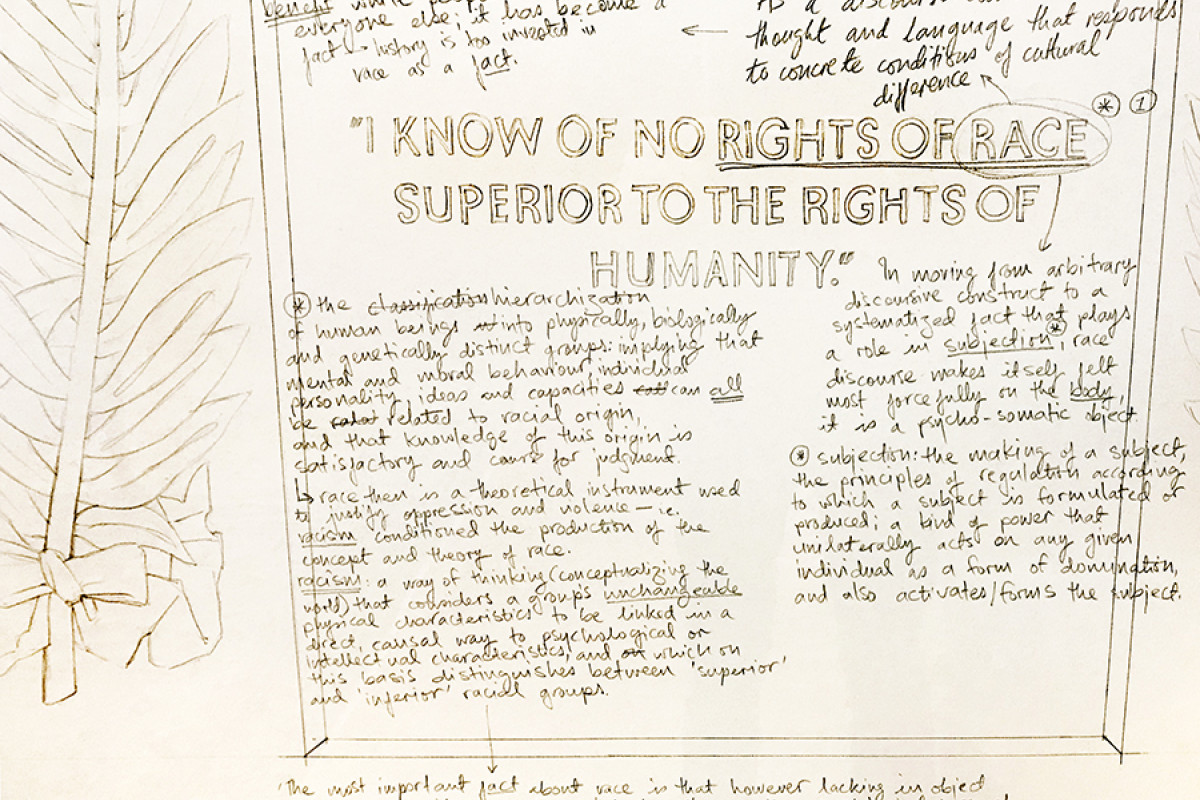 benefit
everyone else; it has become a
fact → history is too invested in
race as a fact.
As a discourse
thought and language that responds
to concrete conditions of cultural
difference
"I KNOW OF NO RIGHTS OF RACE * 1
SUPERIOR TO THE RIGHTS OF
HUMANITY."
* the classification hierarchization
of human beings into physically, biologically
and genetically distinct groups: implying that
mental and moral behaviour, individual
personality, ideas and capacities can all
be related to racial origin,
and that knowledge of this origin is
satisfactory and cause for judgment.
↳ race then is a theoretical instrument used
to justify oppression and violence — i.e.
racism conditioned the production of the
concept and theory of race.
racism: a way of thinking (conceptualizing the
world) that considers a groups unchangeable
physical characteristics to be linked in a
direct, causal way to psychological or
intellectual characteristics, and which on
this basis distinguishes between 'superior'
and 'inferior' racial groups.
In moving from arbitrary
discoursive construct to a
systematized fact that plays
a role in subjection*, race
discourse makes itself felt
most forcefully on the body,
it is a psycho-somatic object.
* subjection: the making of a subject,
the principles of regulation according
to which a subject is formulated or
produced; a kind of power that
unilaterally acts on any given
individual as a form of domination,
and also activates/forms the subject.
'The most important fact about race is that however lacking in object